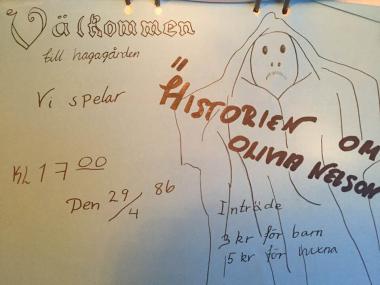 Välkommen
till hagagården
Vi spelar
"HISTORIEN OM
OLIVIA NELSON
KL 17 00
Den 29/4 86
Inträde
3 kr för barn
5 kr för vuxna